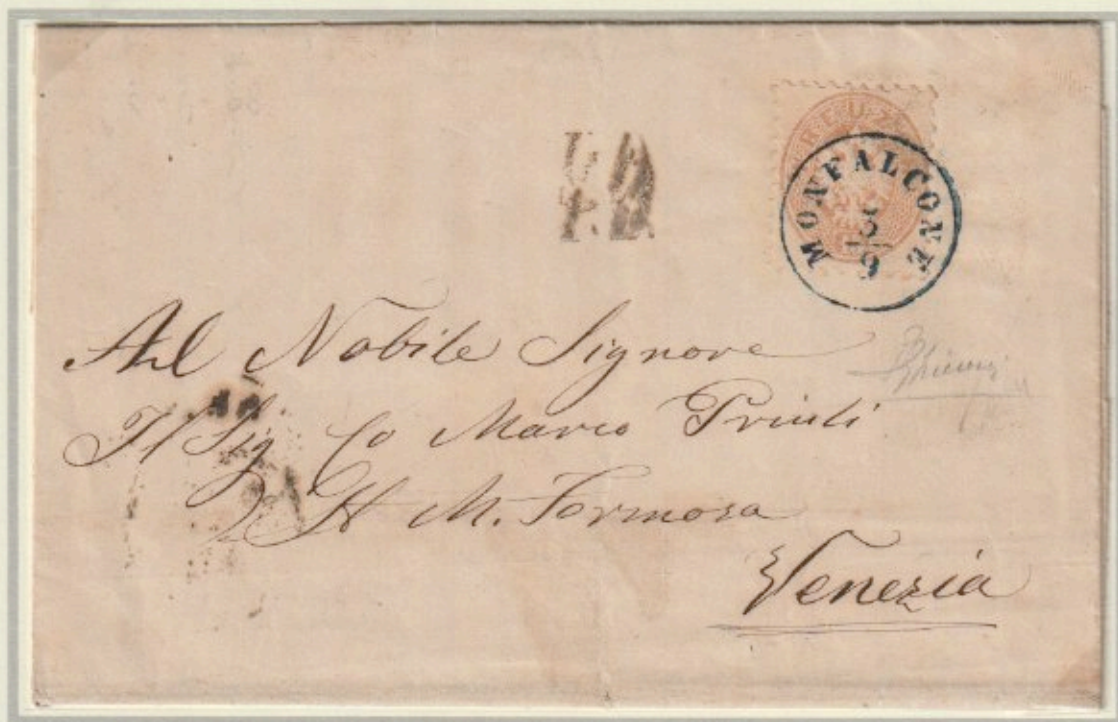 MONFALCONE
3
9
Al Nobile Signore
Il Sig Co Marco Priuli
S M. Formosa
Venezia